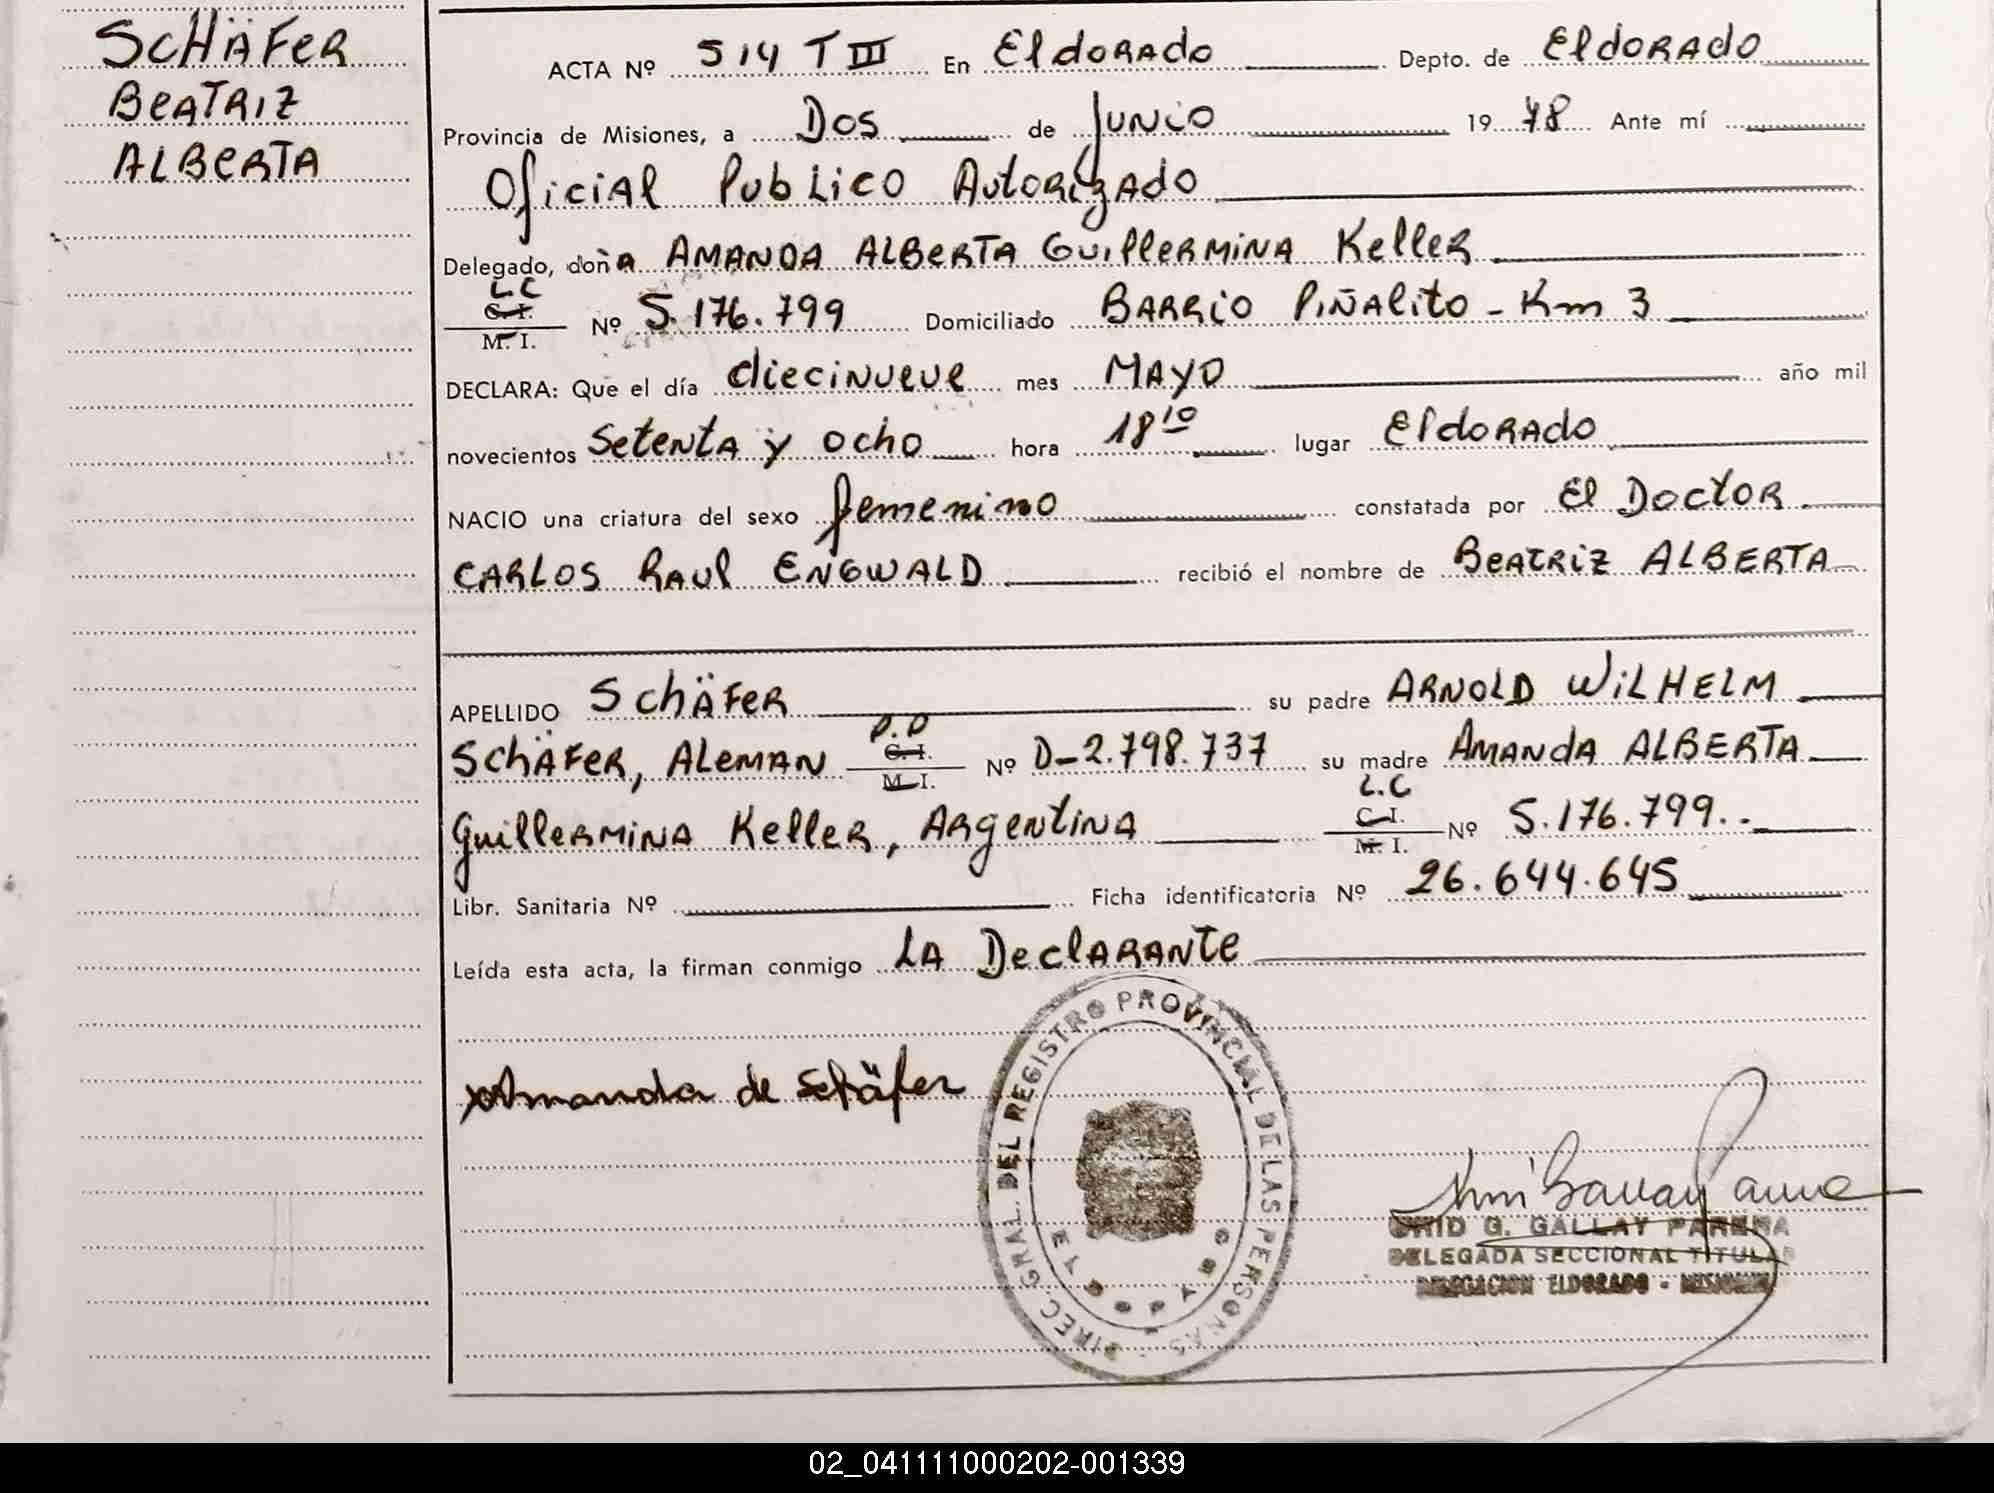 SCHÄFER
BEATRIZ
ALBERTA
ACTA Nº 514 T III En Eldorado Depto. de Eldorado
Provincia de Misiones, a Dos de Junio 19 78 Ante mí
Oficial Publico Autorizado
Delegado, doña AMANDA ALBERTA Guillermina Keller
L C
C. I.
M. I.
Nº 5.176.799 Domiciliado BARRIO PIÑALITO - Km 3
DECLARA: Que el día diecinueve mes MAYO año mil
novecientos Setenta y ocho hora 18 10 lugar Eldorado
NACIO una criatura del sexo femenino constatada por El Doctor
CARLOS RAUL ENGWALD recibió el nombre de BEATRIZ ALBERTA
APELLIDO SCHÄFER su padre ARNOLD WILHELM
SCHÄFER, ALEMAN D.D C. I. M. I. Nº D-2.798.737 su madre AMANDA ALBERTA
Guillermina Keller, Argentina L.C C. I. M. I. Nº 5.176.799..
Libr. Sanitaria Nº Ficha identificatoria Nº 26.644.645
Leída esta acta, la firman conmigo LA Declarante
Amanda de Schäfer
DIREC. GRAL. DEL REGISTRO PROVINCIAL DE LAS PERSONAS
G. GALLAY
DELEGADA SECCIONAL TITULAR
DELEGACION ELDORADO - MISIONES
02_041111000202-001339